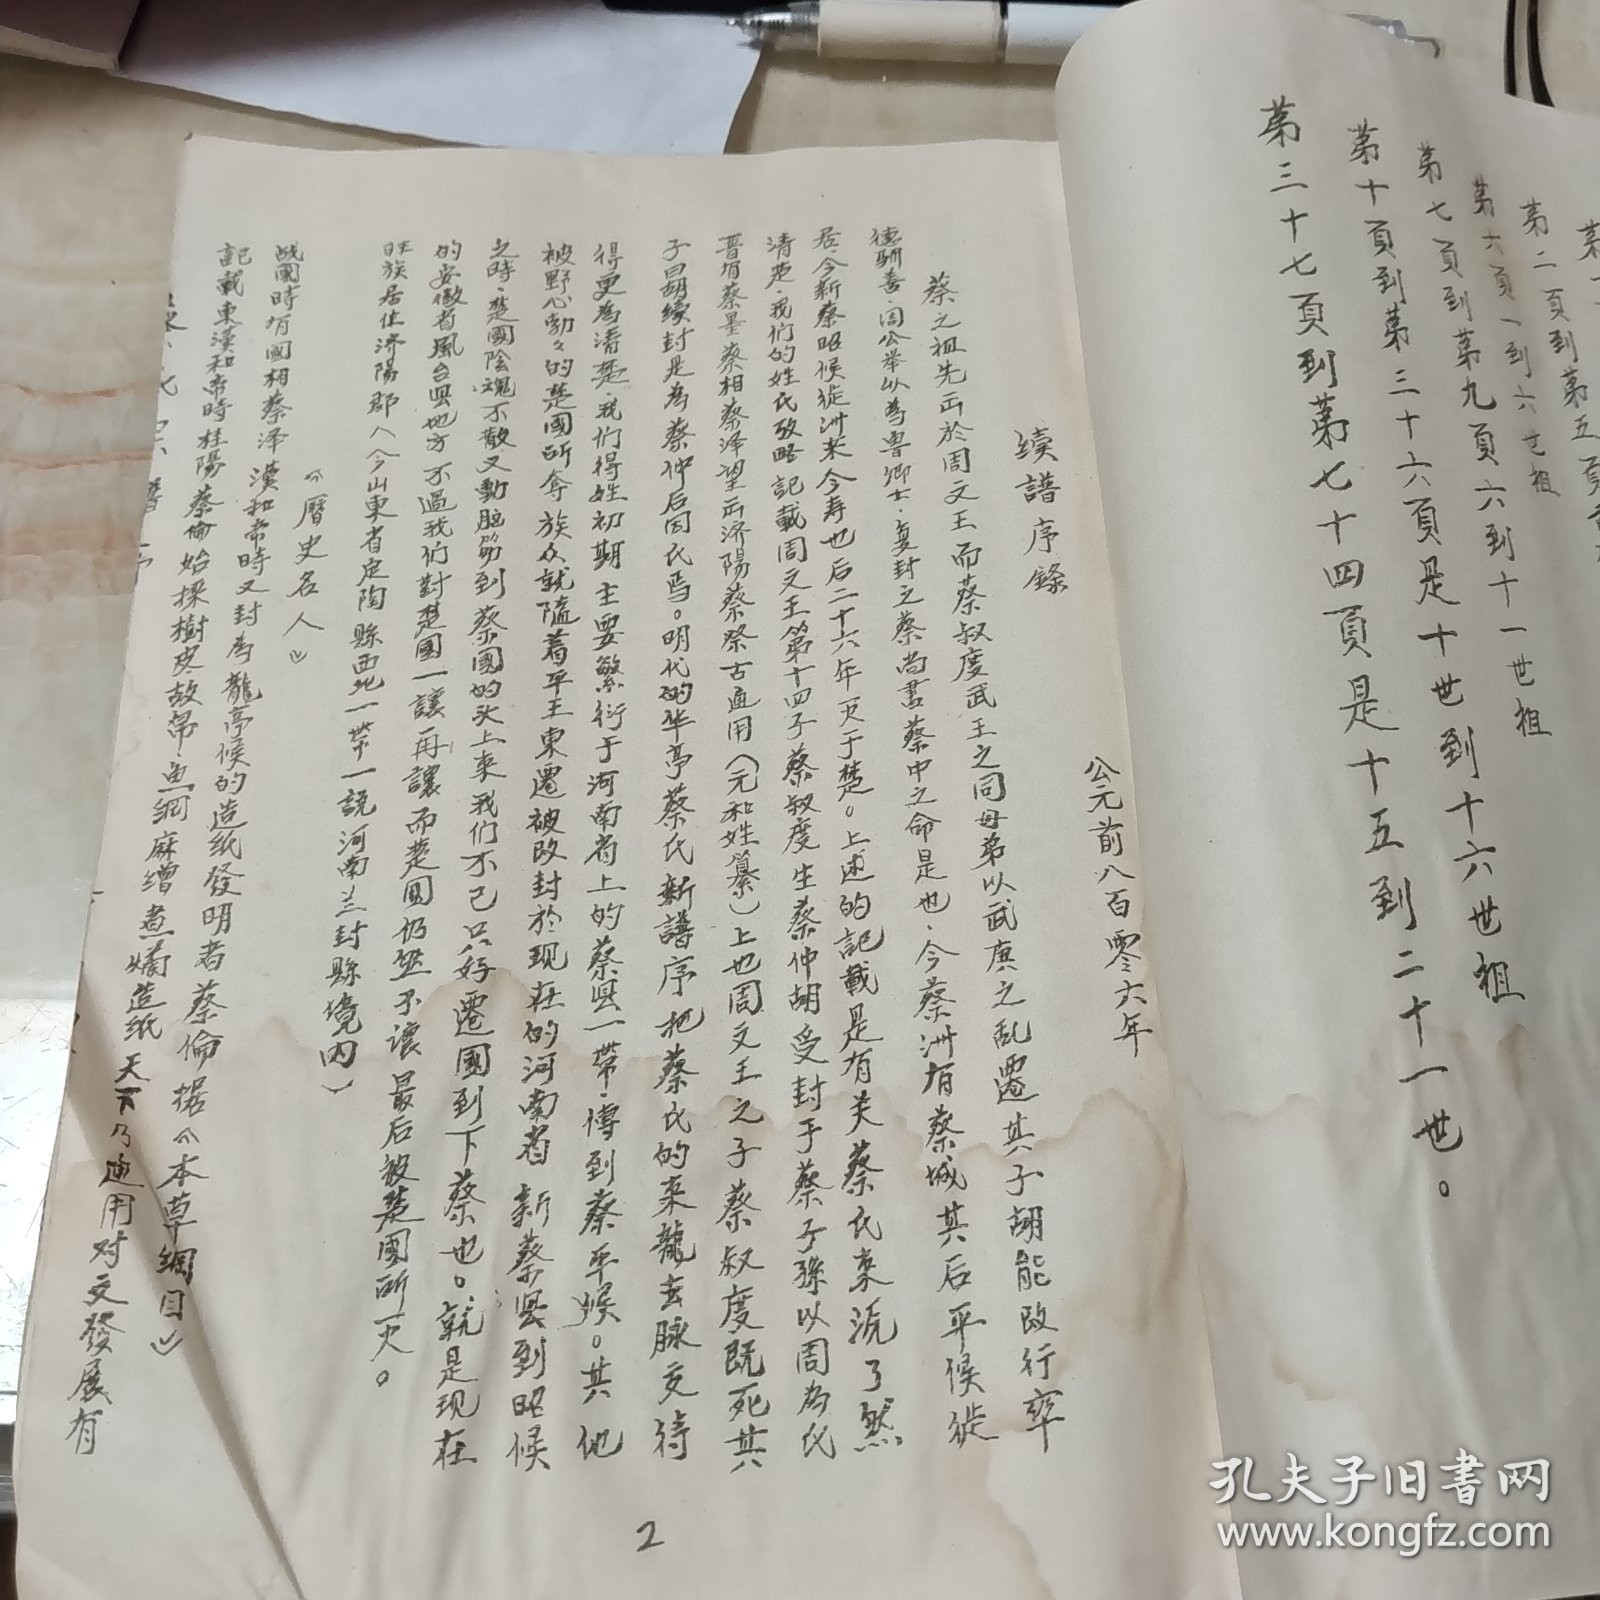 第二頁到第五頁
第六頁一到六世祖
第七頁到第九頁六到十一世祖
第十頁到第三十六頁是十世到十六世祖
第三十七頁到第七十四頁是十五到二十一世。
公元前八百零六年
續譜序錄
蔡之祖先出於周文王而蔡叔度武王之同母弟以武庚之乱遷其子胡能改行率
德馴善、周公举以為魯卿士、复封之蔡尚書蔡中之命是也、今蔡洲有蔡城其后平侯徙
居今新蔡昭侯徙洲来今寿也后二十六年灭于楚。上述的記載是有关蔡氏来源了然
清楚、我们的姓氏攷略記載周文王第十四子蔡叔度生蔡仲胡受封于蔡子孫以周為氏
晋有蔡墨蔡相蔡泽望出济陽蔡祭古通用（元和姓纂）上也周文王之子蔡叔度既死其
子曷胡续封是為蔡仲后因氏焉。明代的华亭蔡氏新譜序把蔡氏的来龍去脉交待
得更為清楚、我们得姓初期主要繁衍于河南省上的蔡县一帶、傳到蔡平候。其他
被野心勃々的楚國所夺族众就隨着平王東遷被改封於现在的河南省新蔡县到昭候
之時、楚國陰魂不散又動脑筋到蔡國的头上来我们不己只好遷國到下蔡也。就是现在
的安徽省風台县地方不過我们對楚國一讓再讓而楚國仍然不讓最后被楚國所灭。
旺族居住济陽郡（今山東省定陶縣西北一帶一説河南兰封縣境内）
《曆史名人》
战國時有國相蔡泽漢和帝時又封為龍亭候的造纸發明者蔡倫据《本草綱目》
記載東漢和帝時桂陽蔡倫始採樹皮故帛、魚網麻繒煮爛造紙天下乃通用对文發展有
孔夫子旧书网
www.kongfz.com
2